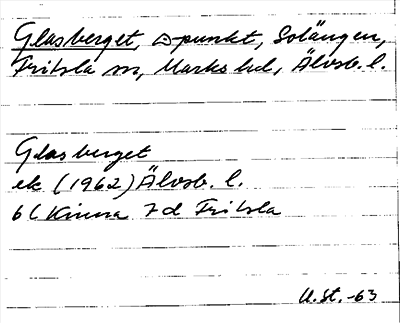 Glasberget, △-punkt, Solängen,
Fritsla sn, Marks hd, Älvsb. l.
Glasberget
ek (1962) Älvsb. l.
6C Kinna 7d Fritsla
U.St. -63